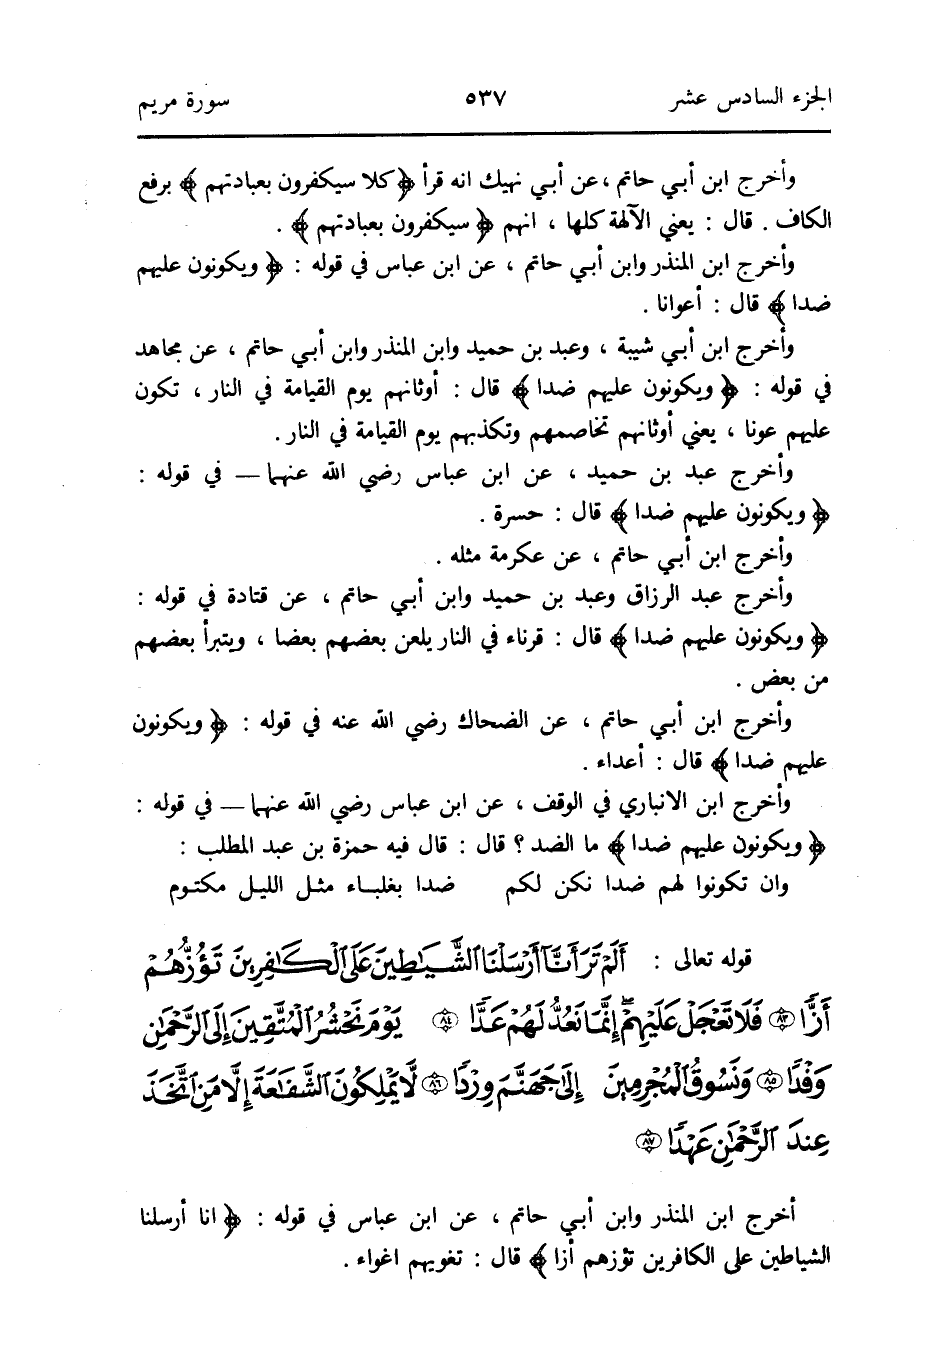 الجزء السادس عشر ٥٣٧ سورة مريم
وأخرج ابن أبي حاتم ، عن أبي نهيك انه قرأ ﴿ كلا سيكفرون بعبادتهم ﴾ برفع
الكاف . قال : يعني الآلهة كلها ، انهم ﴿ سيكفرون بعبادتهم ﴾ .
وأخرج ابن المنذر وابن أبي حاتم ، عن ابن عباس في قوله : ﴿ ويكونون عليهم
ضدا ﴾ قال : أعوانا .
وأخرج ابن أبي شيبة ، وعبد بن حميد وابن المنذر وابن أبي حاتم ، عن مجاهد
في قوله : ﴿ ويكونون عليهم ضدا ﴾ قال : أوثانهم يوم القيامة في النار ، تكون
عليهم عونا ، يعني أوثانهم تخاصمهم وتكذبهم يوم القيامة في النار .
وأخرج عبد بن حميد ، عن ابن عباس رضي الله عنهما — في قوله :
﴿ ويكونون عليهم ضدا ﴾ قال : حسرة .
وأخرج ابن أبي حاتم ، عن عكرمة مثله .
وأخرج عبد الرزاق وعبد بن حميد وابن أبي حاتم ، عن قتادة في قوله :
﴿ ويكونون عليهم ضدا ﴾ قال : قرناء في النار يلعن بعضهم بعضا ، ويتبرأ بعضهم
من بعض .
وأخرج ابن أبي حاتم ، عن الضحاك رضي الله عنه في قوله : ﴿ ويكونون
عليهم ضدا ﴾ قال : أعداء .
وأخرج ابن الانباري في الوقف ، عن ابن عباس رضي الله عنهما — في قوله :
﴿ ويكونون عليهم ضدا ﴾ ما الضد ؟ قال : قال فيه حمزة بن عبد المطلب :
وان تكونوا لهم ضدا نكن لكم ضدا بغلباء مثل الليل مكتوم
قوله تعالى : أَلَمْ تَرَ أَنَّآ أَرْسَلْنَا ٱلشَّيَٰطِينَ عَلَى ٱلْكَٰفِرِينَ تَؤُزُّهُمْ
أَزًّا ﴿٨٣﴾ فَلَا تَعْجَلْ عَلَيْهِمْ ۖ إِنَّمَا نَعُدُّ لَهُمْ عَدًّا ﴿٨٤﴾ يَوْمَ نَحْشُرُ ٱلْمُتَّقِينَ إِلَى ٱلرَّحْمَٰنِ
وَفْدًا ﴿٨٥﴾ وَنَسُوقُ ٱلْمُجْرِمِينَ إِلَىٰ جَهَنَّمَ وِرْدًا ﴿٨٦﴾ لَّا يَمْلِكُونَ ٱلشَّفَٰعَةَ إِلَّا مَنِ ٱتَّخَذَ
عِندَ ٱلرَّحْمَٰنِ عَهْدًا ﴿٨٧﴾
أخرج ابن المنذر وابن أبي حاتم ، عن ابن عباس في قوله : ﴿ انا أرسلنا
الشياطين على الكافرين تؤزهم أزا ﴾ قال : تغويهم اغواء .